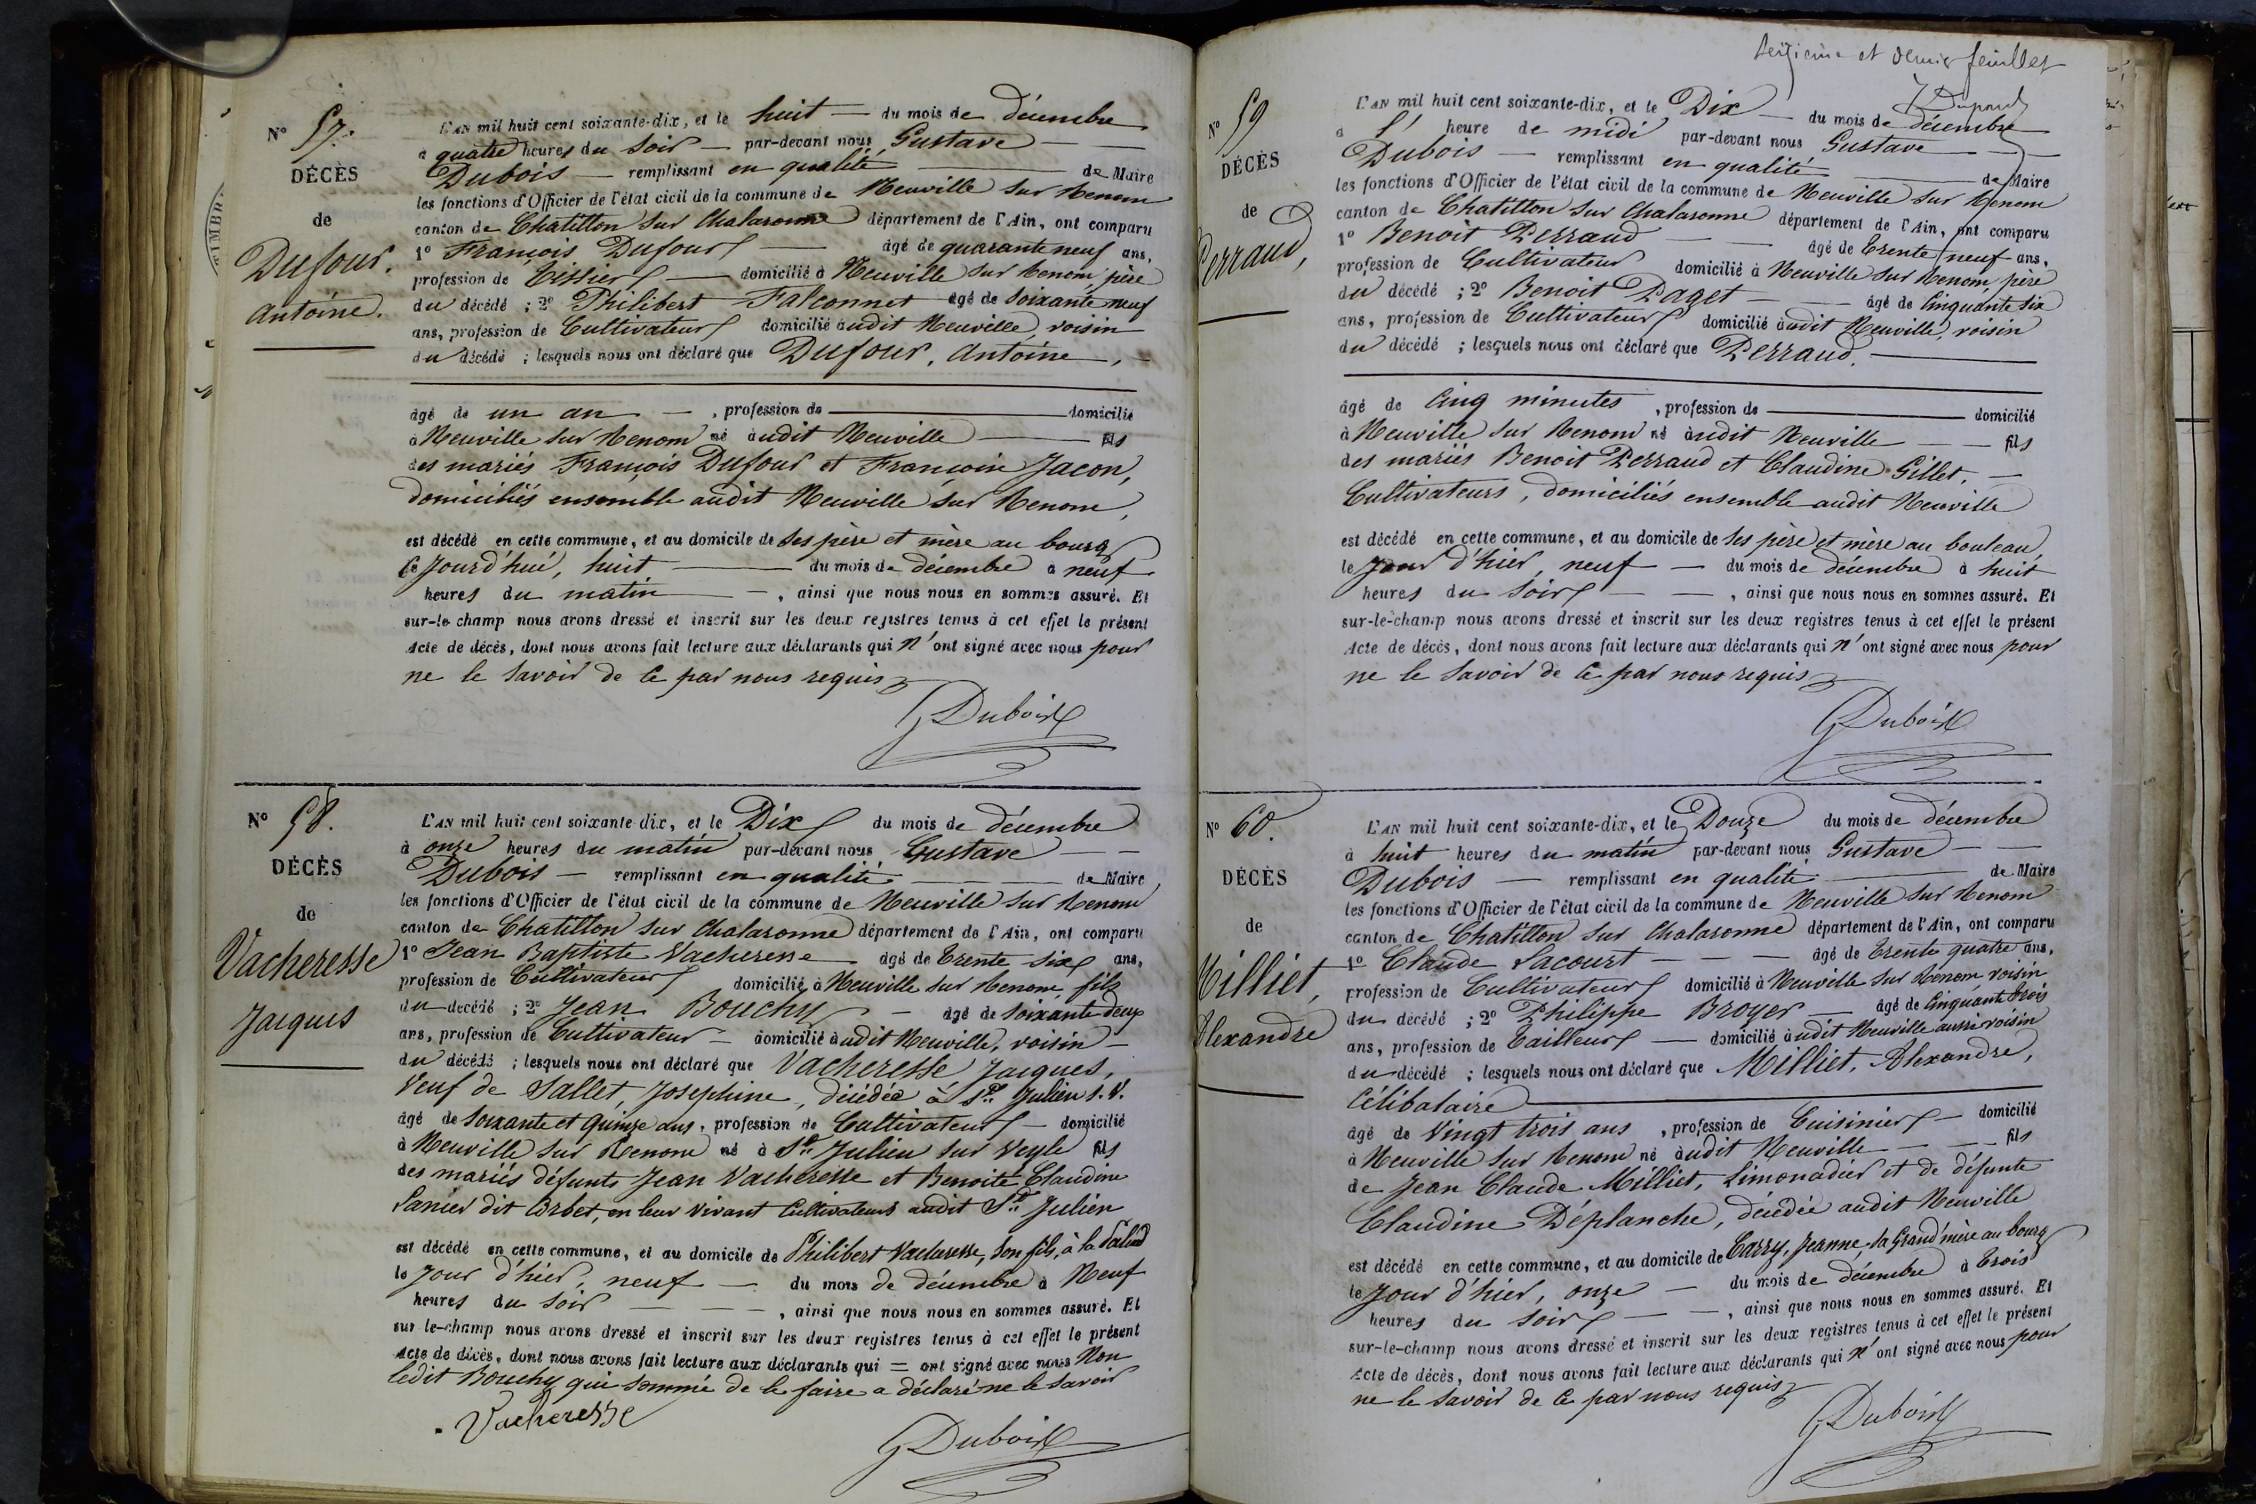 N° 57.
DÉCÈS
de
Dufour.
Antoine.
L'AN mil huit cent soixante-dix, et le huit — du mois de décembre
à quatre heures du soir — par-devant nous Gustave —
Dubois — remplissant en qualité — de Maire
les fonctions d'Officier de l'état civil de la commune de Neuville sur Renom
canton de Chatillon sur Chalaronne département de l'Ain, ont comparu
1° François Dufour — âgé de quarante neuf ans,
profession de Tissier — domicilié à Neuville sur Renom, père
du décédé ; 2° Philibert Falconnet âgé de soixante neuf
ans, profession de Cultivateur domicilié audit Neuville, voisin
du décédé ; lesquels nous ont déclaré que Dufour, Antoine, —
âgé de un an — , profession de — domicilié
à Neuville sur Renom né audit Neuville — fils
des mariés François Dufour et Françoise Jacon,
domiciliés ensemble audit Neuville sur Renom,
est décédé en cette commune, et au domicile de ses père et mère au bourg
ce jourd'hui, huit — du mois de décembre à neuf
heures du matin — , ainsi que nous nous en sommes assuré. Et
sur-le-champ nous avons dressé et inscrit sur les deux registres tenus à cet effet le présent
Acte de décès, dont nous avons fait lecture aux déclarants qui n'ont signé avec nous pour
ne le savoir de ce par nous requis
GDubois
N° 58.
DÉCÈS
de
Vacheresse
Jacques
L'AN mil huit cent soixante-dix, et le Dix du mois de décembre
à onze heures du matin par-devant nous Gustave — —
Dubois — remplissant en qualité — de Maire
les fonctions d'Officier de l'état civil de la commune de Neuville sur Renom
canton de Chatillon sur Chalaronne département de l'Ain, ont comparu
1° Jean Baptiste Vacheresse — âgé de trente six ans,
profession de Cultivateur domicilié à Neuville sur Renom, fils
du décédé ; 2° Jean Bouchy — âgé de soixante deux
ans, profession de Cultivateur — domicilié audit Neuville, voisin —
du décédé ; lesquels nous ont déclaré que Vacheresse Jacques,
Veuf de Sallet, Josephine, décédée à St Julien s. V.
âgé de soixante et quinze ans, profession de Cultivateur — domicilié
à Neuville sur Renom né à St Julien sur Veyle fils
des mariés défunts Jean Vacheresse et Benoite Claudine
Lanier dit Corbet, en leur vivant Cultivateurs audit St Julien
est décédé en cette commune, et au domicile de Philibert Vacheresse, son fils, à la
le jour d'hier, neuf — du mois de décembre à Neuf
heures du soir — — — , ainsi que nous nous en sommes assuré. Et
sur le-champ nous avons dressé et inscrit sur les deux registres tenus à cet effet le présent
Acte de décès, dont nous avons fait lecture aux déclarants qui = ont signé avec nous Non
ledit Bouchy qui sommé de le faire a déclaré ne le savoir
Vacheresse
GDubois
seizième et dernier feuillet
N° 59
DÉCÈS
de
Perraud,
L'AN mil huit cent soixante-dix, et le Dix — du mois de décembre
à l' heure de midi par-devant nous Gustave —
Dubois — remplissant en qualité — de Maire
les fonctions d'Officier de l'état civil de la commune de Neuville sur Renom
canton de Chatillon sur Chalaronne département de l'Ain, ont comparu
1° Benoit Perraud — — âgé de trente neuf ans,
profession de Cultivateur domicilié à Neuville sur Renom, père
du décédé ; 2° Benoit Paget — — âgé de cinquante six
ans, profession de Cultivateur domicilié audit Neuville, voisin
du décédé ; lesquels nous ont déclaré que Perraud. —
âgé de cinq minutes , profession de — domicilié
à Neuville sur Renom né audit Neuville — — fils
des mariés Benoit Perraud et Claudine Gillet, —
Cultivateurs, domiciliés ensemble audit Neuville
est décédé en cette commune, et au domicile de ses père et mère au bouleau,
le jour d'hier, neuf — du mois de décembre à huit
heures du soir — — , ainsi que nous nous en sommes assuré. Et
sur-le-champ nous avons dressé et inscrit sur les deux registres tenus à cet effet le présent
Acte de décès, dont nous avons fait lecture aux déclarants qui n'ont signé avec nous pour
ne le savoir de ce par nous requis
GDubois
N° 60.
DÉCÈS
de
Milliet,
Alexandre
L'AN mil huit cent soixante-dix, et le Douze du mois de décembre
à huit heures du matin par-devant nous Gustave — —
Dubois — remplissant en qualité — de Maire
les fonctions d'Officier de l'état civil de la commune de Neuville sur Renom
canton de Chatillon sur Chalaronne département de l'Ain, ont comparu
1° Claude Lacourt — — — âgé de trente quatre ans,
profession de Cultivateur domicilié à Neuville sur Renom voisin
du décédé ; 2° Philippe Broyer — âgé de cinquante trois
ans, profession de Tailleur — domicilié audit Neuville aussi voisin
du décédé ; lesquels nous ont déclaré que Milliet, Alexandre,
Célibataire —
âgé de vingt trois ans , profession de Cuisinier — domicilié
à Neuville sur Renom né audit Neuville — — fils
de Jean Claude Milliet, Limonadier et de défunte
Claudine Déplanche, décédée audit Neuville
est décédé en cette commune, et au domicile de Carry, Jeanne, sa Grand'mère au bourg
le jour d'hier, onze — du mois de décembre à trois
heures du soir — — , ainsi que nous nous en sommes assuré. Et
sur-le-champ nous avons dressé et inscrit sur les deux registres tenus à cet effet le présent
Acte de décès, dont nous avons fait lecture aux déclarants qui n'ont signé avec nous pour
ne le savoir de ce par nous requis
GDubois